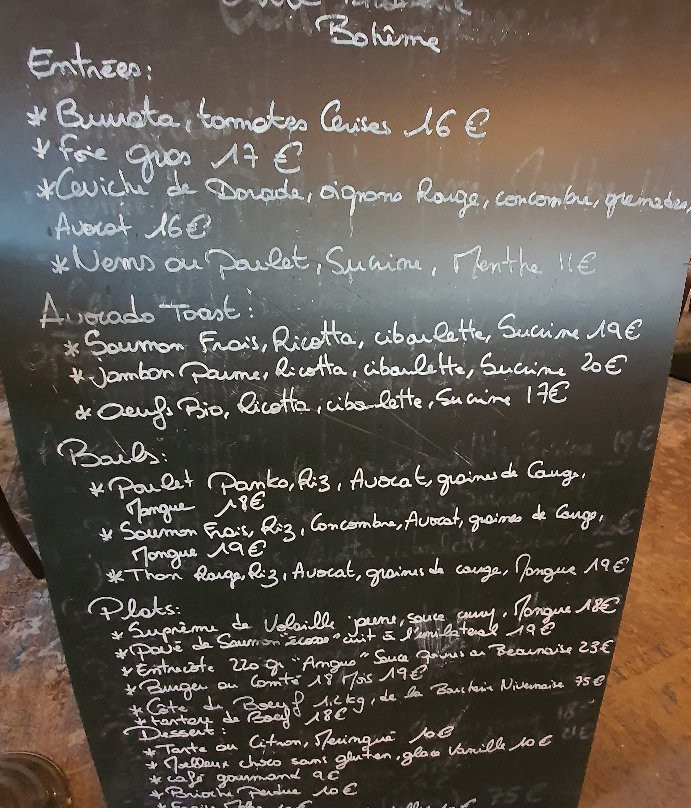 Bohême
Entrées:
* Burrata, tomates Cerises 16€
* Foie gras 17€
* Ceviche de Dorade, oignons Rouge, concombre, grenades,
Avocat 16€
* Nems au Poulet, Sucrine, Menthe 11€
Avocado Toast:
* Saumon Frais, Ricotta, ciboulette, Sucrine 19€
* Jambon Parme, Ricotta, ciboulette, Sucrine 20€
* Oeufs Bio, Ricotta, ciboulette, Sucrine 17€
Bowls:
* Poulet Panko, Riz, Avocat, graines de Courge,
Mangue 18€
* Saumon Frais, Riz, Concombre, Avocat, graines de Courge,
Mangue 19€
* Thon Rouge, Riz, Avocat, graines de courge, Mangue 19€
Plats:
* Suprême de Volaille jaune, sauce curry, Mangue 18€
* Pavé de Saumon "écosse" cuit à l'unilatéral 19€
* Entrecôte 220 gr "Angus" Sauce poivre ou Bearnaise 23€
* Burger au Comté 18 Mois 19€
* Côte de Boeuf 1,2kg, de la Nivernaise 75€
* tartare de Boeuf 18€
Dessert:
* Tarte au Citron, Meringué 10€
* Moelleux choco sans gluten, glace Vanille 10€
* café gourmand 9€
* Brioche Perdue 10€